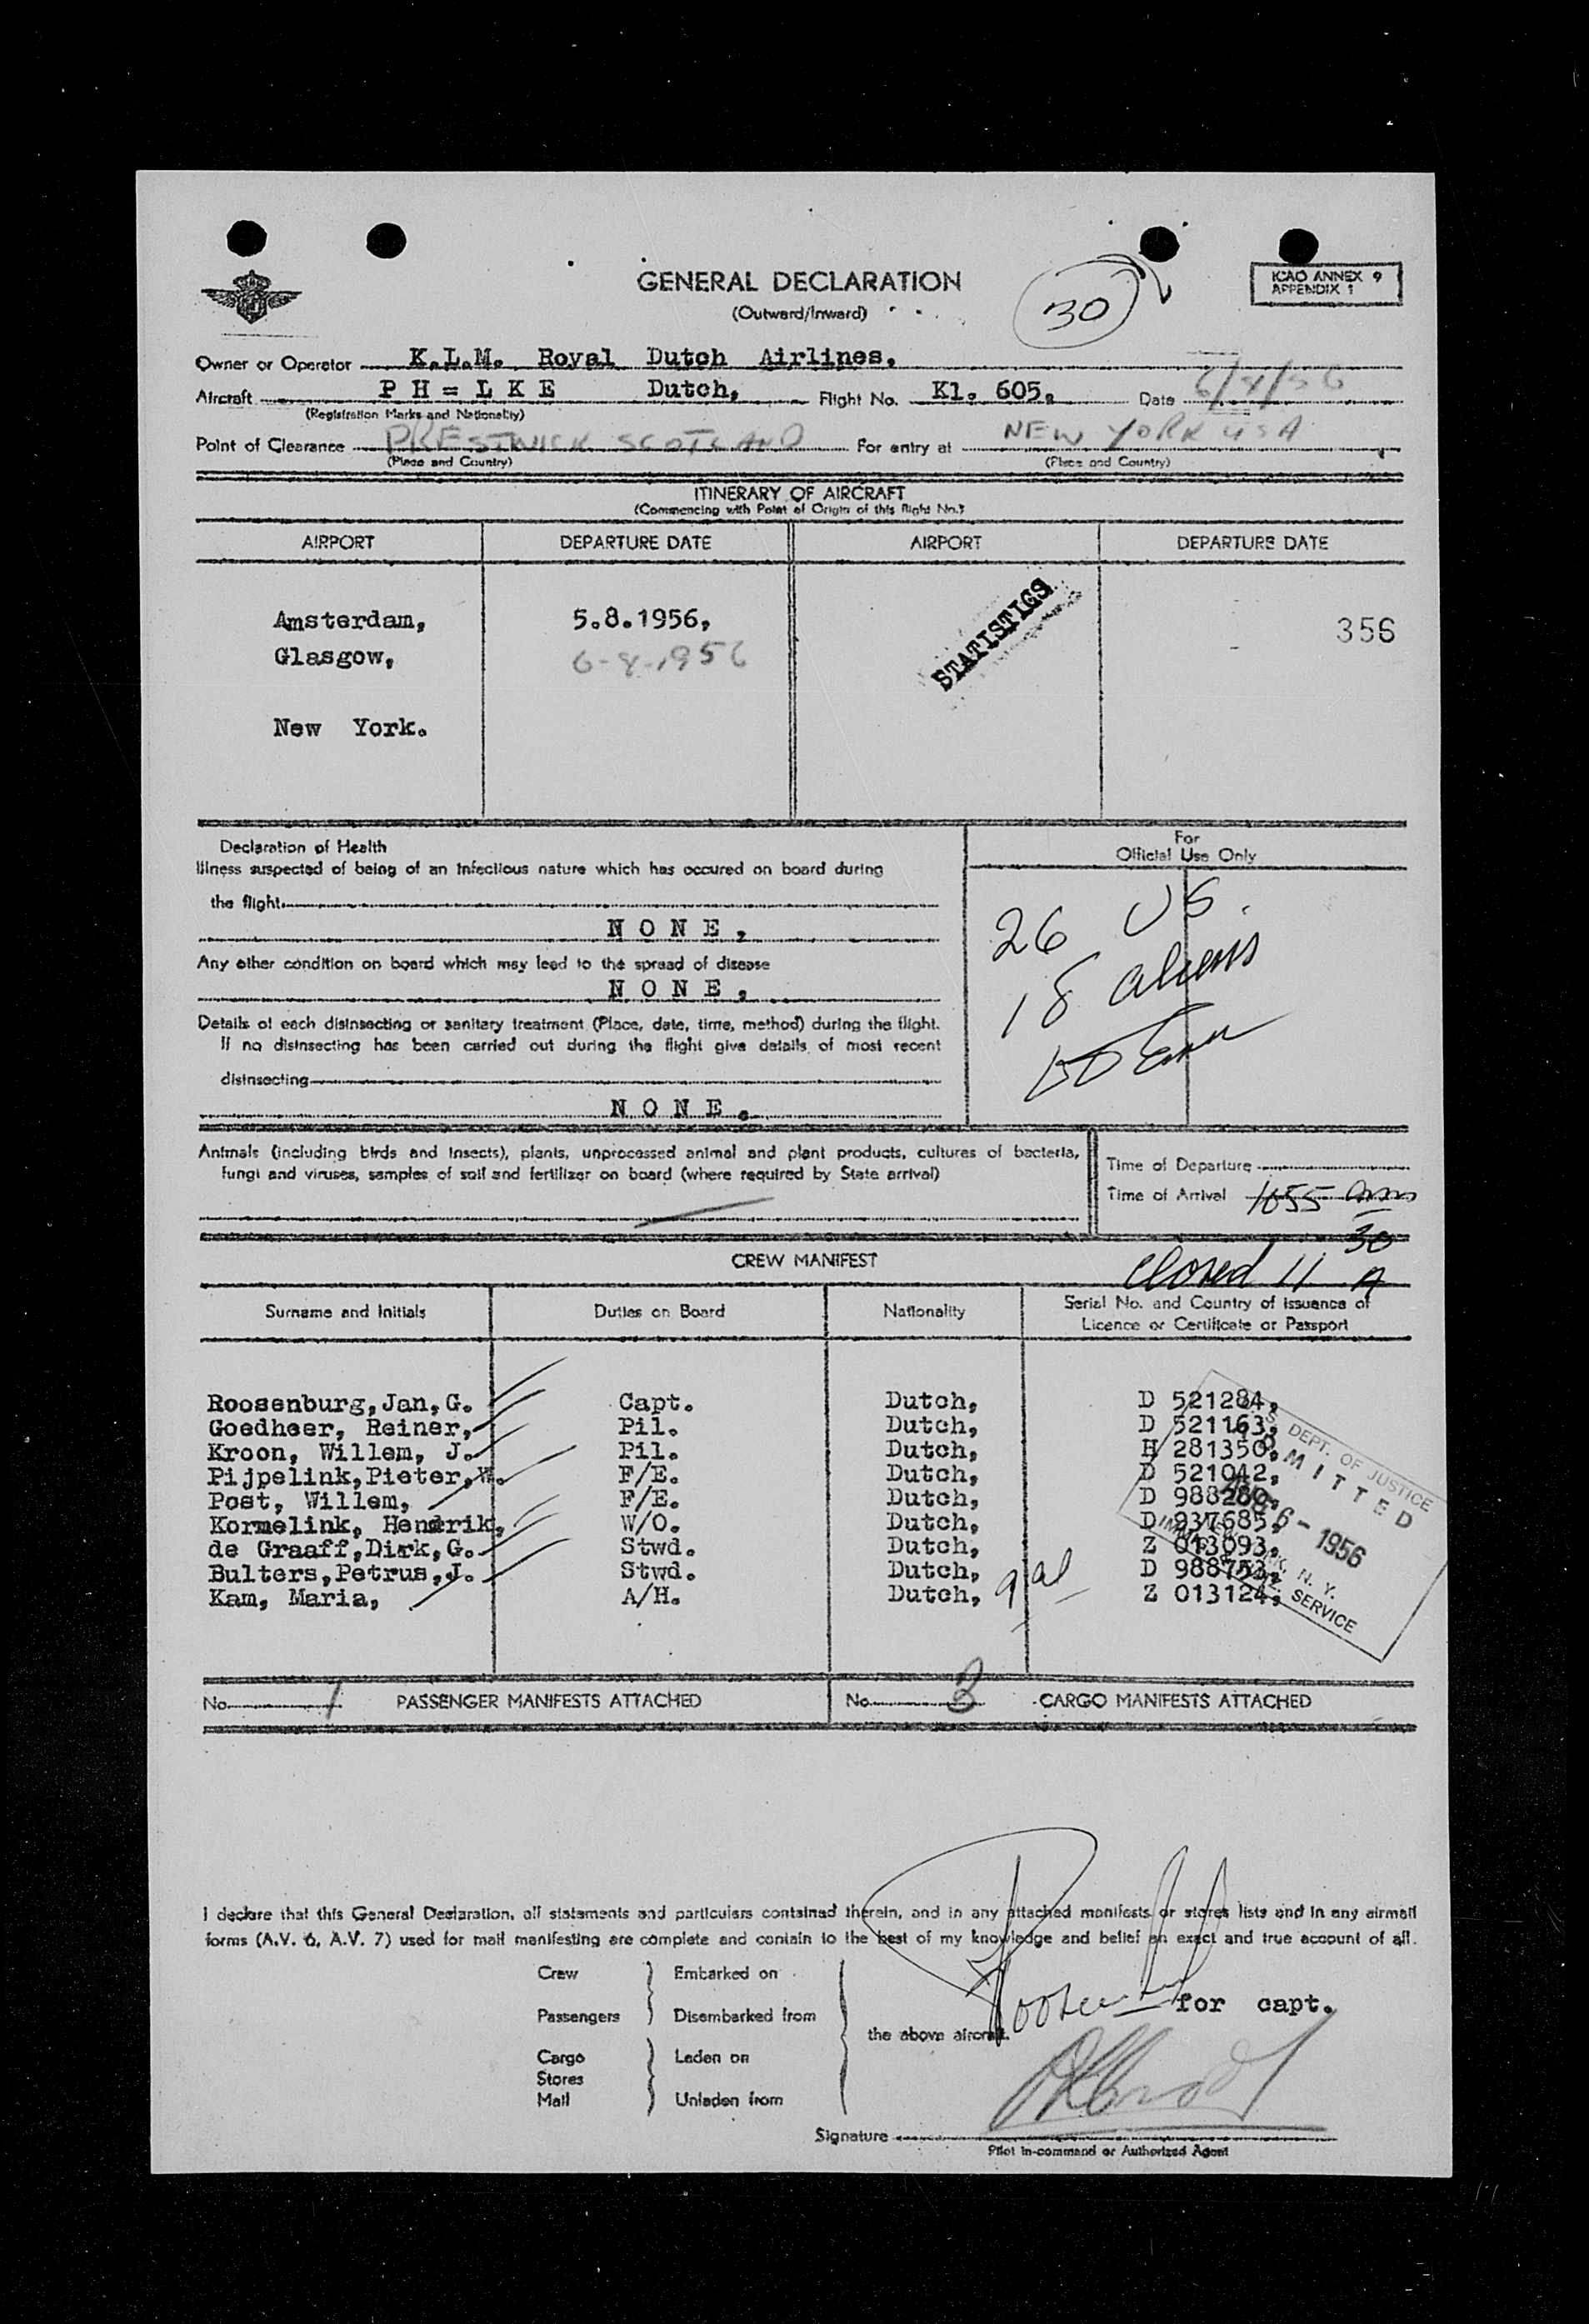 GENERAL DECLARATION
(Outward/Inward)
30
ICAO ANNEX 9
APPENDIX 1
Owner or Operator K.L.M. Royal Dutch Airlines.
Aircraft P H = L K E Dutch, Flight No. Kl. 605. Date 6/8/56
(Registration Marks and Nationality)
Point of Clearance PRESTWICK SCOTLAND For entry at NEW YORK USA
(Place and Country) (Place and Country)
ITINERARY OF AIRCRAFT
(Commencing with Point of Origin of this flight No.)
AIRPORT DEPARTURE DATE AIRPORT DEPARTURE DATE
Amsterdam, 5.8.1956, STATISTICS 356
Glasgow, 6-8-1956
New York.
Declaration of Health
Illness suspected of being of an infectious nature which has occured on board during
the flight.
N O N E ,
Any other condition on board which may lead to the spread of disease
N O N E ,
Details of each disinsecting or sanitary treatment (Place, date, time, method) during the flight.
If no disinsecting has been carried out during the flight give details of most recent
disinsecting
N O N E .
For
Official Use Only
26 US.
18 aliens
Animals (including birds and insects), plants, unprocessed animal and plant products, cultures of bacteria,
fungi and viruses, samples of soil and fertilizer on board (where required by State arrival)
Time of Departure
Time of Arrival 1055 am
CREW MANIFEST
closed 11 30 A
Surname and Initials Duties on Board Nationality Serial No. and Country of issuance of
Licence or Certificate or Passport
Roosenburg,Jan,G. Capt. Dutch, D 521284,
Goedheer, Reiner, Pil. Dutch, D 521163,
Kroon, Willem, J. Pil. Dutch, H 281350,
Pijpelink,Pieter,W. F/E. Dutch, D 521042,
Post, Willem, F/E. Dutch, D 988280,
Kormelink, Hendrik, W/O. Dutch, D 937685,
de Graaff,Dirk,G. Stwd. Dutch, Z 013093,
Bulters,Petrus,J. Stwd. Dutch, D 988753,
Kam, Maria, A/H. Dutch, 9 al Z 013124,
U.S. DEPT. OF JUSTICE
ADMITTED
AUG 6 - 1956
NEW YORK, N. Y.
SERVICE
No. 1 PASSENGER MANIFESTS ATTACHED No. 3 CARGO MANIFESTS ATTACHED
I declare that this General Declaration, all statements and particulars contained therein, and in any attached manifests or stores lists and in any airmail
forms (A.V. 6, A.V. 7) used for mail manifesting are complete and contain to the best of my knowledge and belief an exact and true account of all.
Crew Embarked on
Passengers Disembarked from
the above aircraft.
for capt.
Cargo Laden on
Stores
Mail Unladen from
Signature
Pilot in-command or Authorized Agent